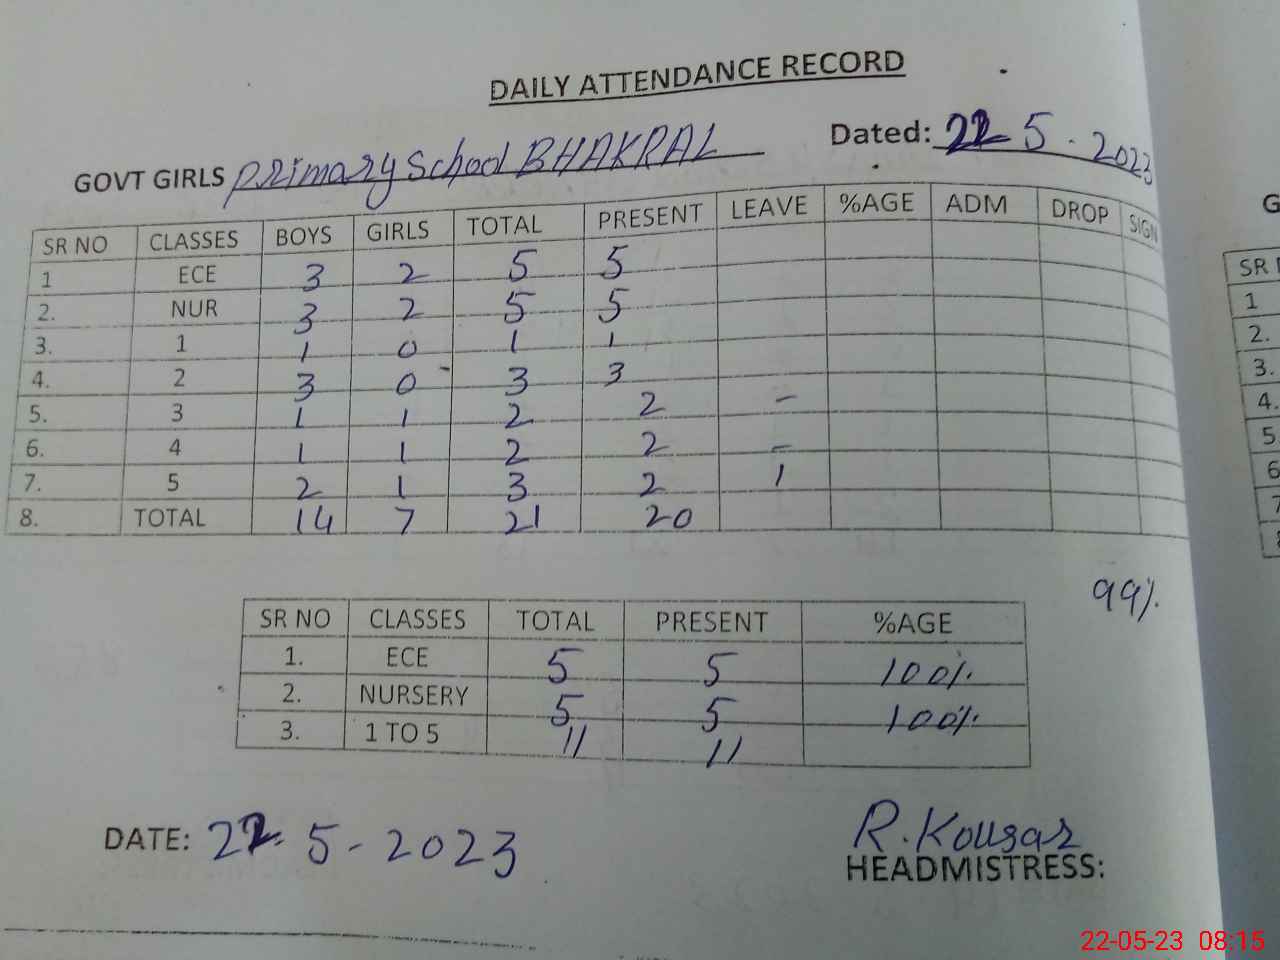 DAILY ATTENDANCE RECORD
GOVT GIRLS Primary School BHAKRAL Dated: 22 5 . 2023
SR NO CLASSES BOYS GIRLS TOTAL PRESENT LEAVE %AGE ADM DROP SIGN
1 ECE 3 2 5 5
2. NUR 3 2 5 5
3. 1 1 0 1 1
4. 2 3 0 3 3
5. 3 1 1 2 2 -
6. 4 1 1 2 2 -
7. 5 2 1 3 2 1
8. TOTAL 14 7 21 20
99%
SR NO CLASSES TOTAL PRESENT %AGE
1. ECE 5 5 100%
2. NURSERY 5 5 100%
3. 1 TO 5 11 11
DATE: 22. 5 - 2023
R. Kousar
HEADMISTRESS:
G
SR
1
2.
3.
4.
5
6
7
22-05-23 08:15